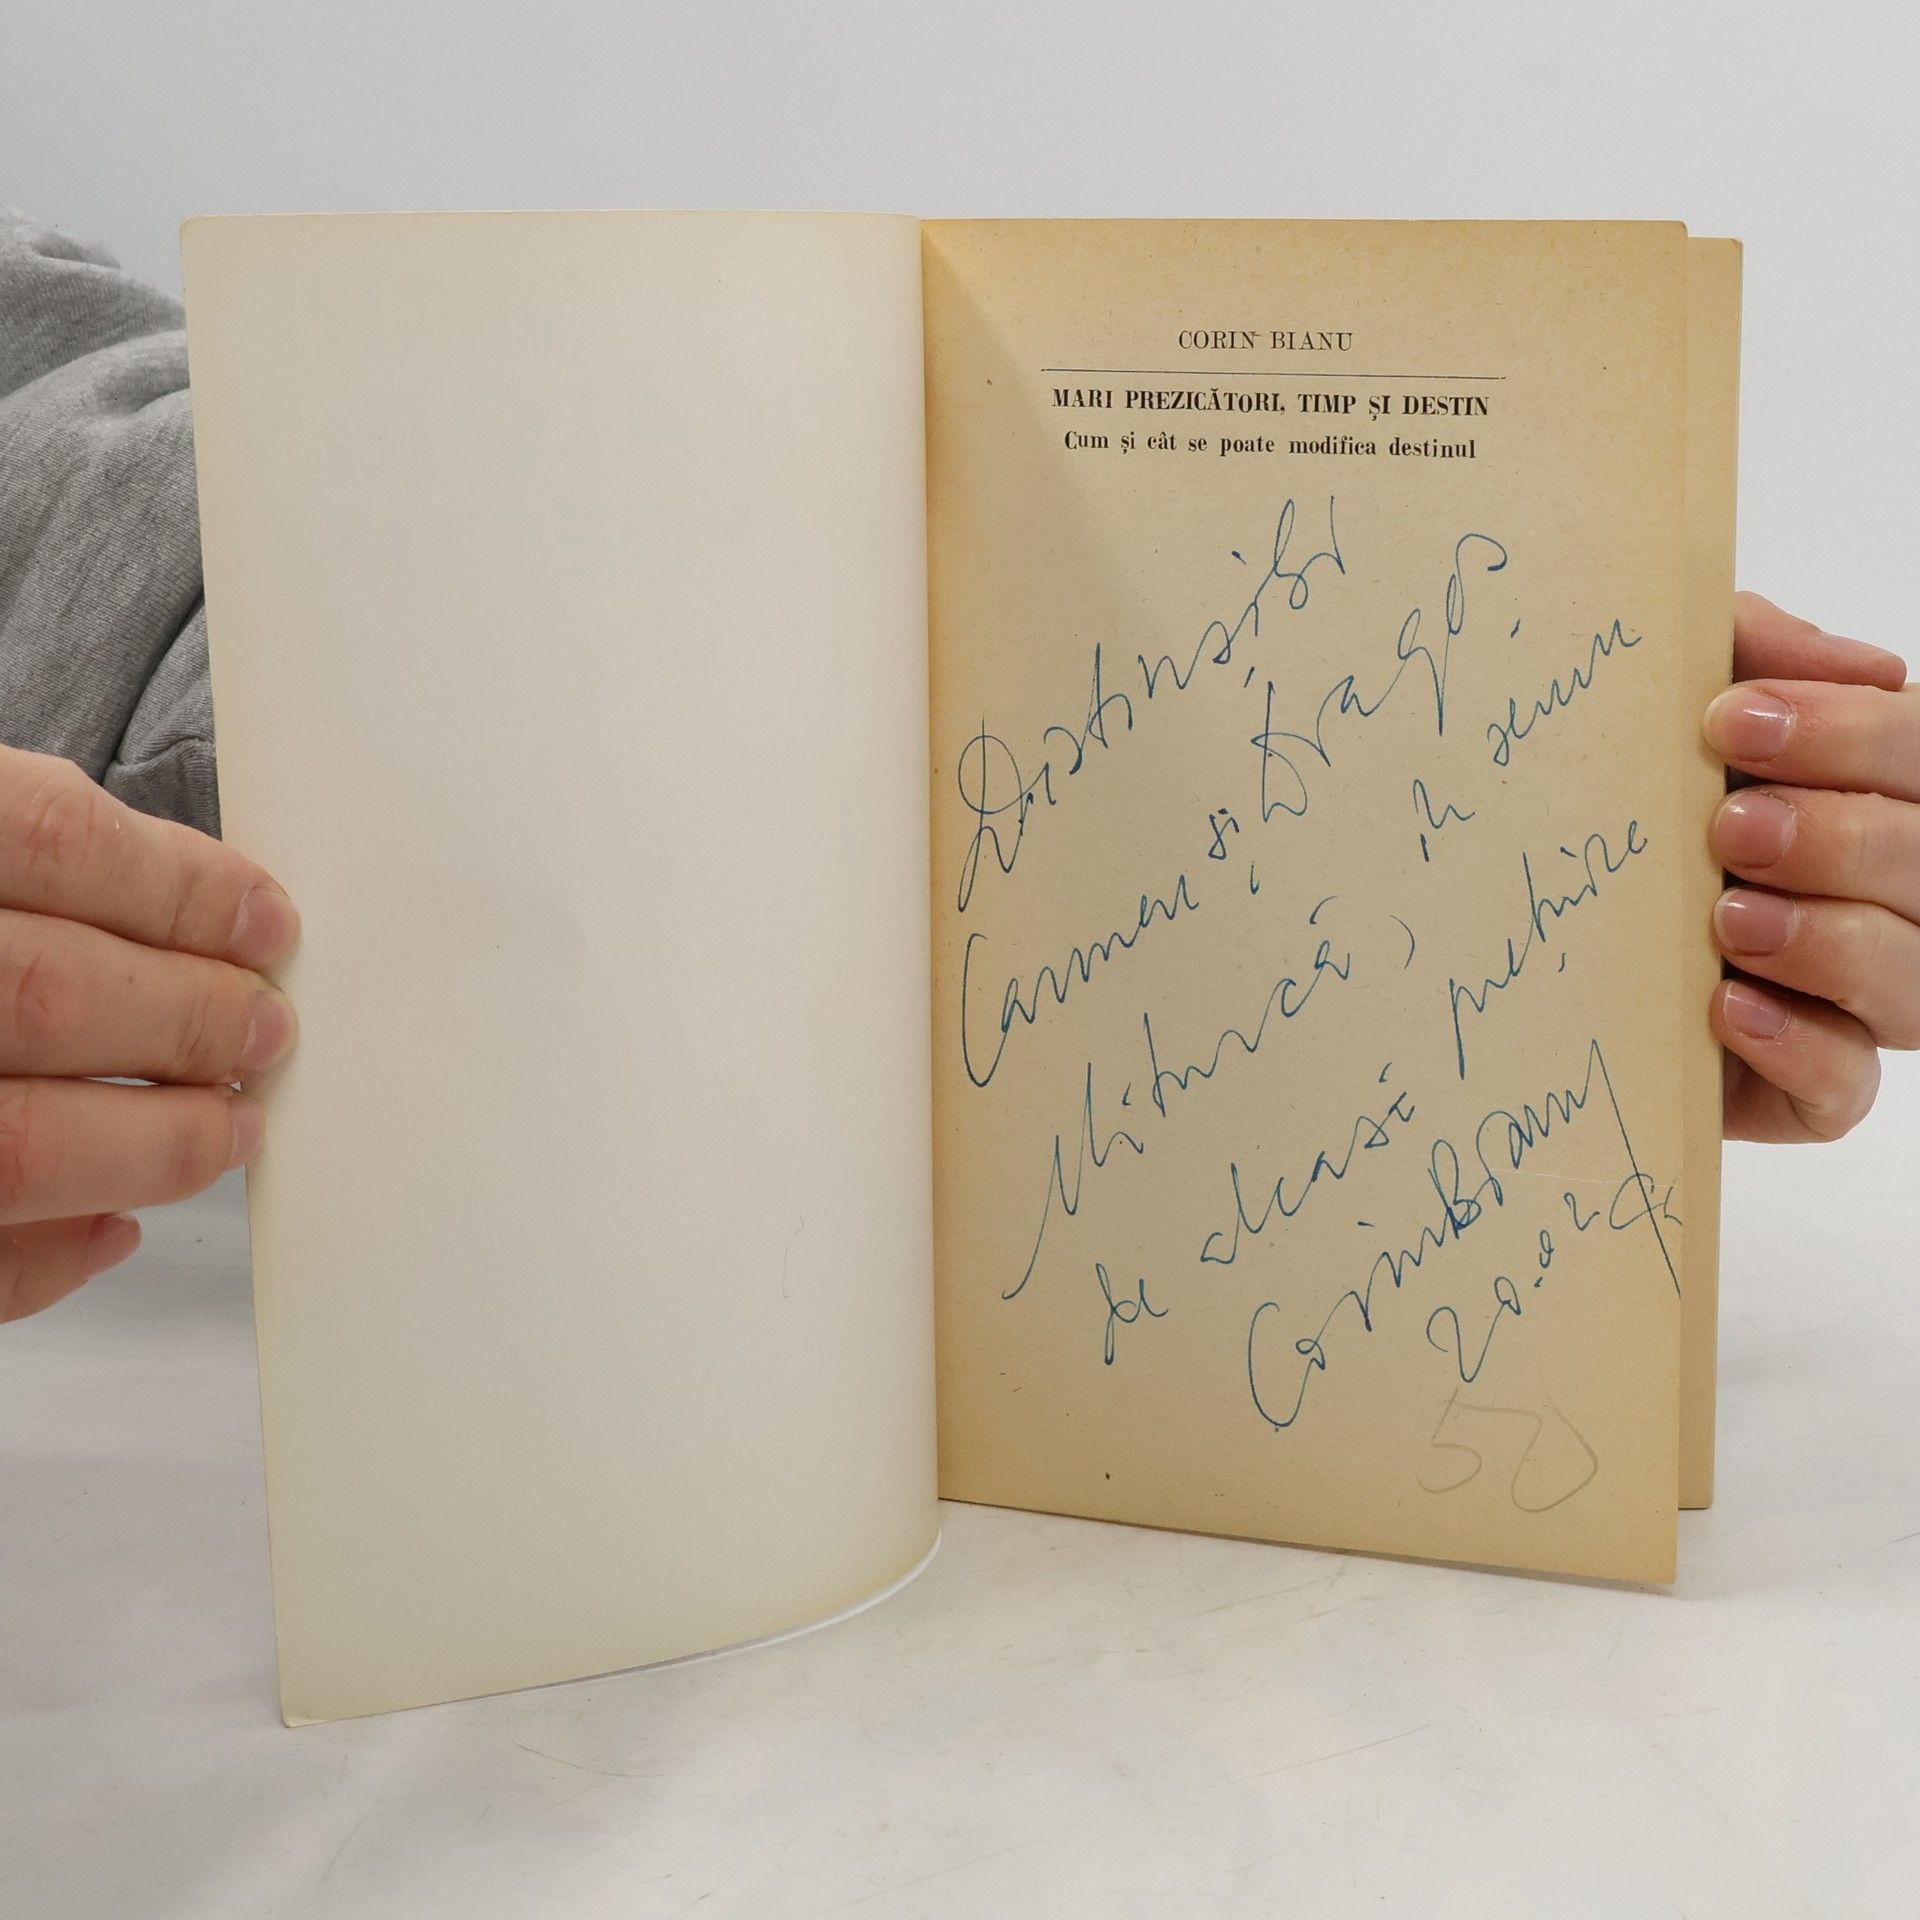 CORIN BIANU
MARI PREZICĂTORI, TIMP ȘI DESTIN
Cum și cât se poate modifica destinul
Distinșilor
Carmen și Dragoș
Miturcă, în semn
de aleasă prețuire
Corin Bianu
50